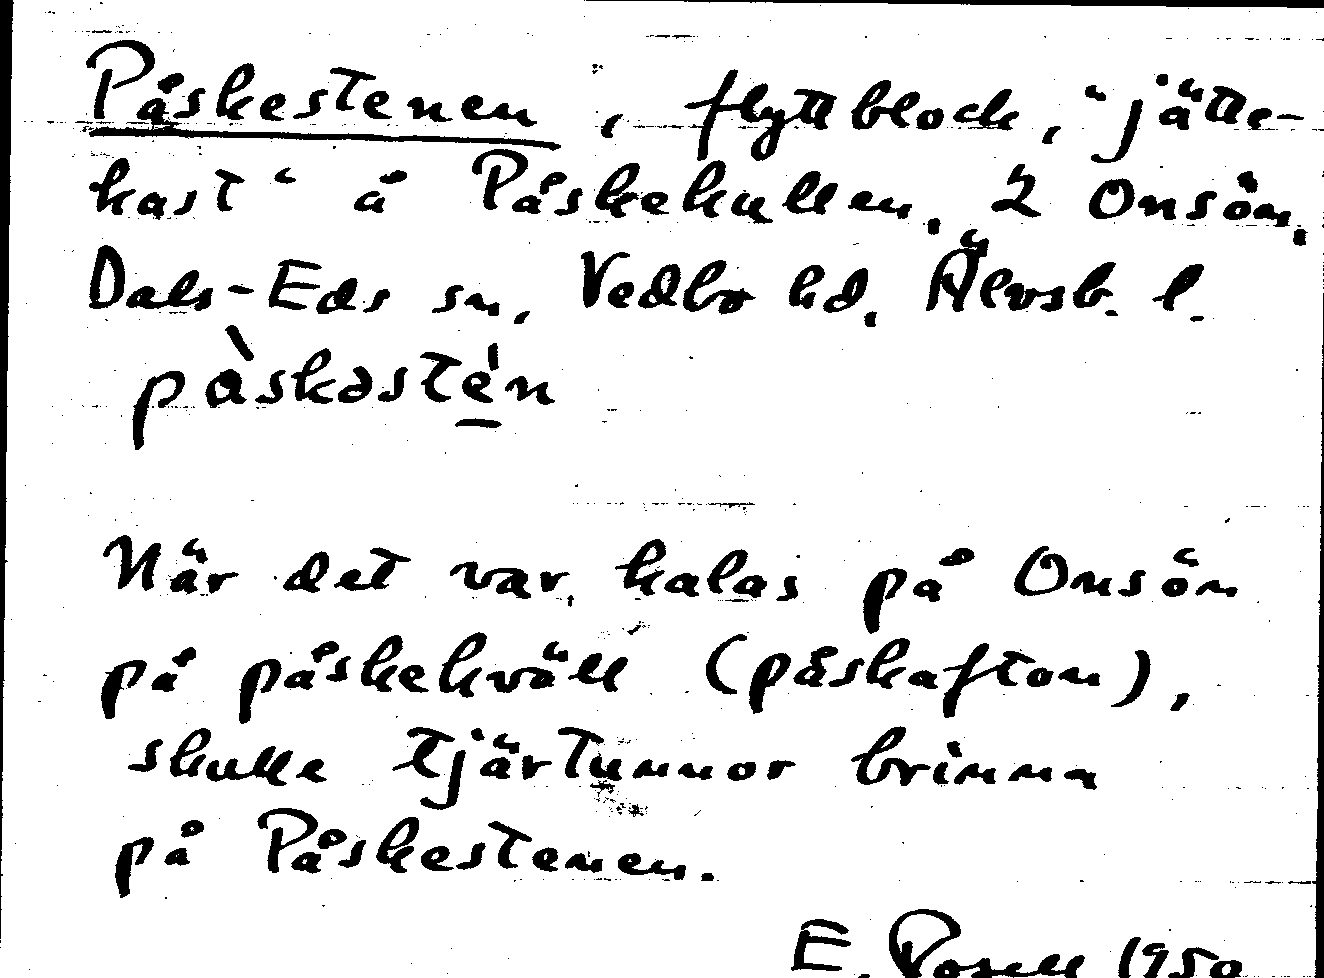 Påskestenen, flyttblock, "jätte-
kast" å Påskekullen, 2 Onsön,
Dals-Eds sn, Vedbo hd, Älvsb. l.
påskəstèn
När det var kalas på Onsön
på påskekväll (påskafton),
skulle tjärtunnor brinna
på Påskestenen.
E. Rosell 1950